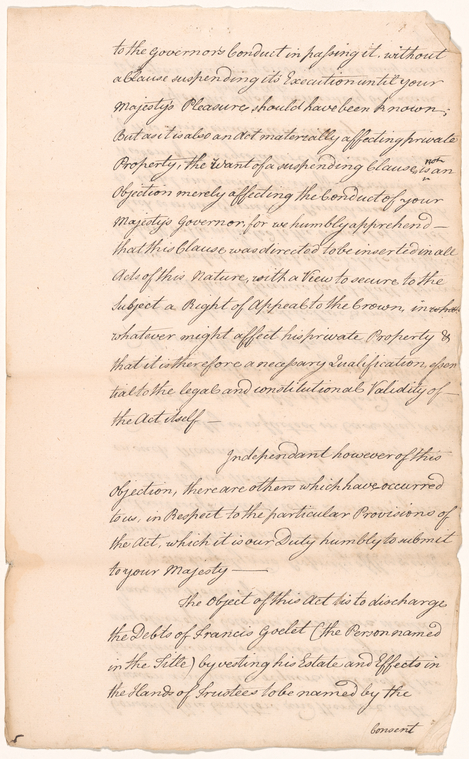 to the Governor's Conduct in passing it, without
a Clause suspending its Execution until your
Majesty's Pleasure should have been known;
But as it is also an Act materially affecting private
Property, the Want of a suspending Clause, is not an
Objection merely affecting the Conduct of your
Majesty's Governor, for we humbly apprehend —
that this Clause was directed to be inserted in all
Acts of this Nature, with a View to secure to the
Subject a Right of Appeal to the Crown, in
whatever might affect his private Property &
that it is therefore a necessary Qualification, essen
tial to the legal and constitutional Validity of —
the Act itself —
Independant however of this
Objection, there are others which have occurred
to us, in Respect to the particular Provisions of
the Act, which it is our Duty humbly to submit
to your Majesty —
The Object of this Act is to discharge
the Debts of Francis Goelet (the Person named
in the Title) by vesting his Estate and Effects in
the Hands of Trustees to be named by the
Consent